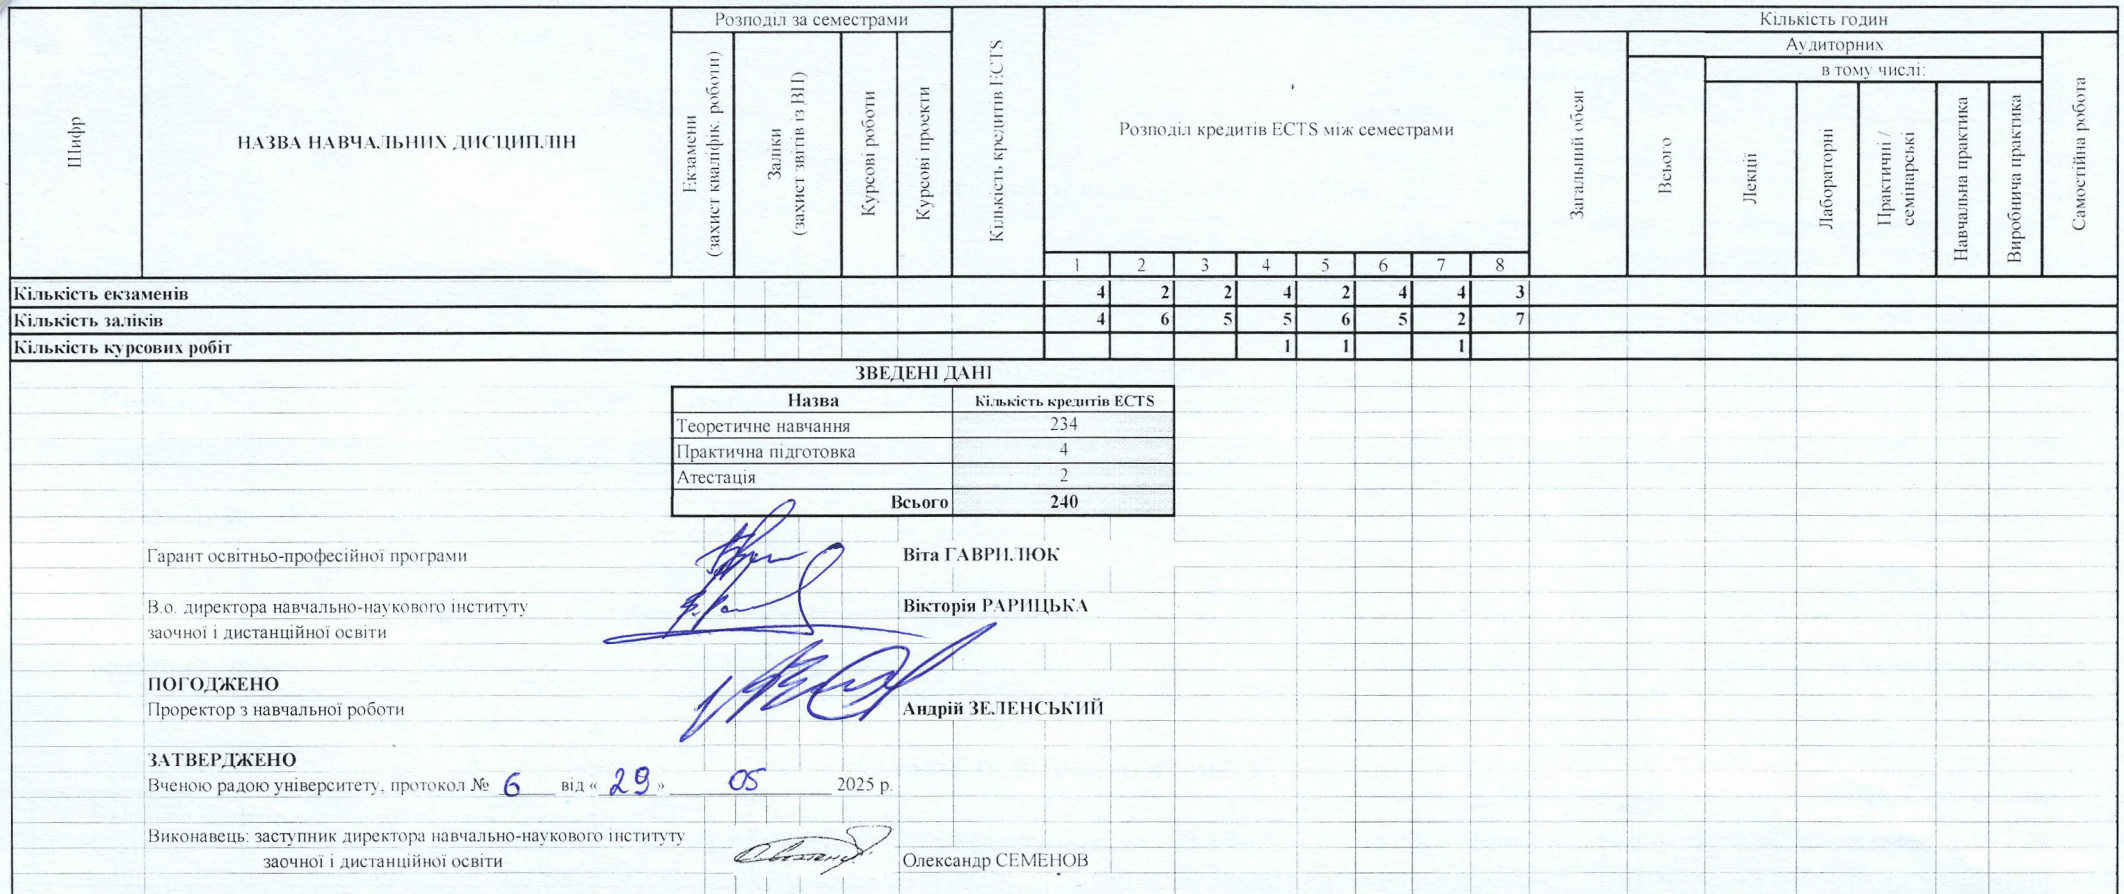 Шифр
НАЗВА НАВЧАЛЬНИХ ДИСЦИПЛІН
Розподіл за семестрами
Екзамени
(захист кваліфік. роботи)
Заліки
(захист звітів із ВП)
Курсові роботи
Курсові проекти
Кількість кредитів ECTS
Розподіл кредитів ECTS між семестрами
1 2 3 4 5 6 7 8
Кількість годин
Загальний обсяг
Аудиторних
Всього
в тому числі:
Лекції
Лабораторні
Практичні /
семінарські
Навчальна практика
Виробнича практика
Самостійна робота
Кількість екзаменів 4 2 2 4 2 4 4 3
Кількість заліків 4 6 5 5 6 5 2 7
Кількість курсових робіт 1 1 1
ЗВЕДЕНІ ДАНІ
Назва Кількість кредитів ECTS
Теоретичне навчання 234
Практична підготовка 4
Атестація 2
Всього 240
Гарант освітньо-професійної програми Віта ГАВРИЛЮК
В.о. директора навчально-наукового інституту Вікторія РАРИЦЬКА
заочної і дистанційної освіти
ПОГОДЖЕНО
Проректор з навчальної роботи Андрій ЗЕЛЕНСЬКИЙ
ЗАТВЕРДЖЕНО
Вченою радою університету, протокол № 6 від « 29 » 05 2025 р.
Виконавець: заступник директора навчально-наукового інституту
заочної і дистанційної освіти Олександр СЕМЕНОВ